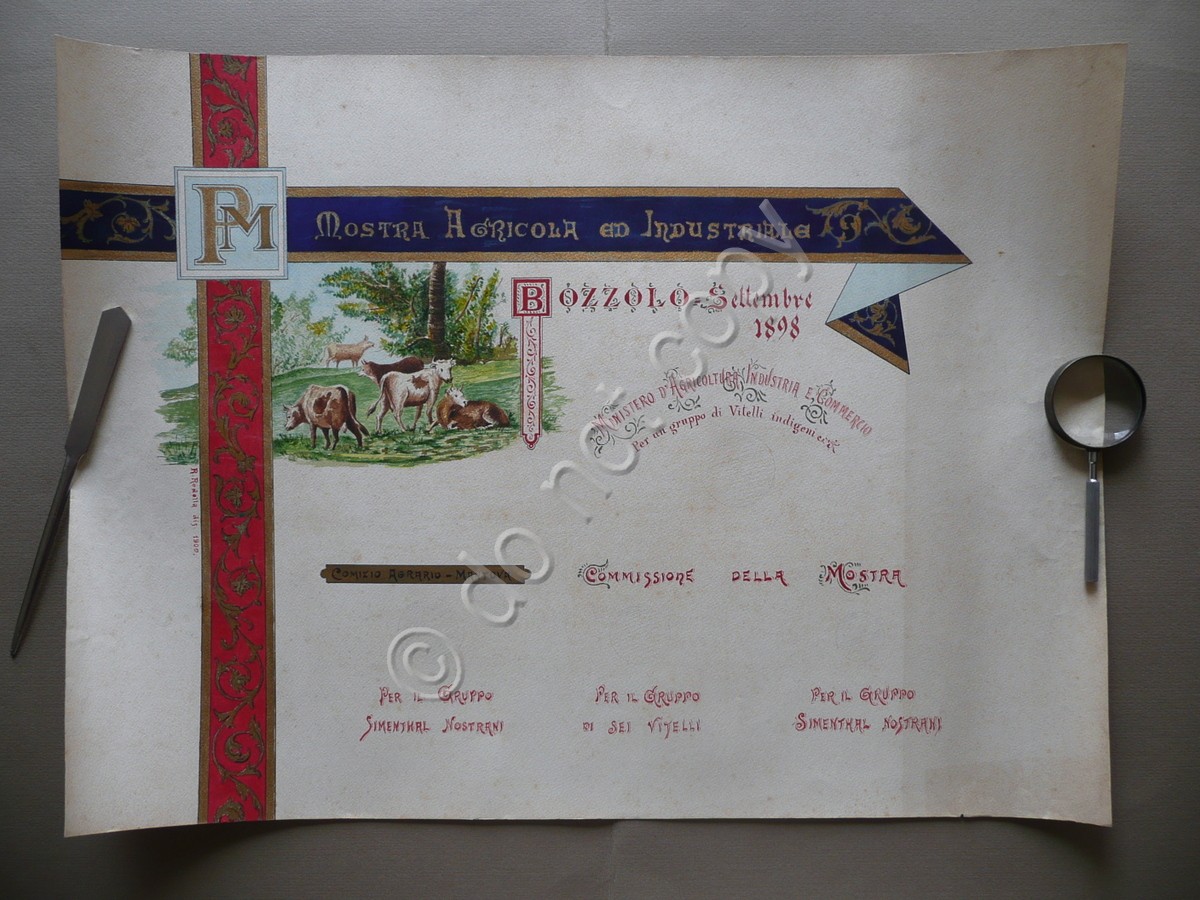 PM
Mostra Agricola ed Industriale
Bozzolo - Settembre
1898
Ministero d'Agricoltura Industria e Commercio
Per un gruppo di Vitelli indigeni
R. Redolia dis 1900.
Comizio Agrario - Mantova
Commissione della Mostra
Per il Gruppo
Simenthal Nostrani
Per il Gruppo
di sei Vitelli
Per il Gruppo
Simenthal Nostrani
© do not copy